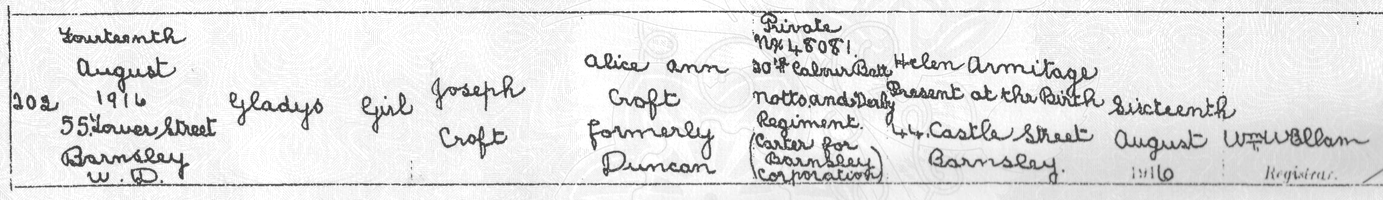 202
Fourteenth
August
1916
55 Tower Street
Barnsley
U. D.
Gladys
Girl
Joseph
Croft
Alice Ann
Croft
formerly
Duncan
Private
No 48081.
20th Labour Batt
Notts. and Derby
Regiment.
(Carter for
Barnsley
Corporation)
Helen Armitage
Present at the Birth
44. Castle Street
Barnsley.
Sixteenth
August
1916
Wm
Registrar.